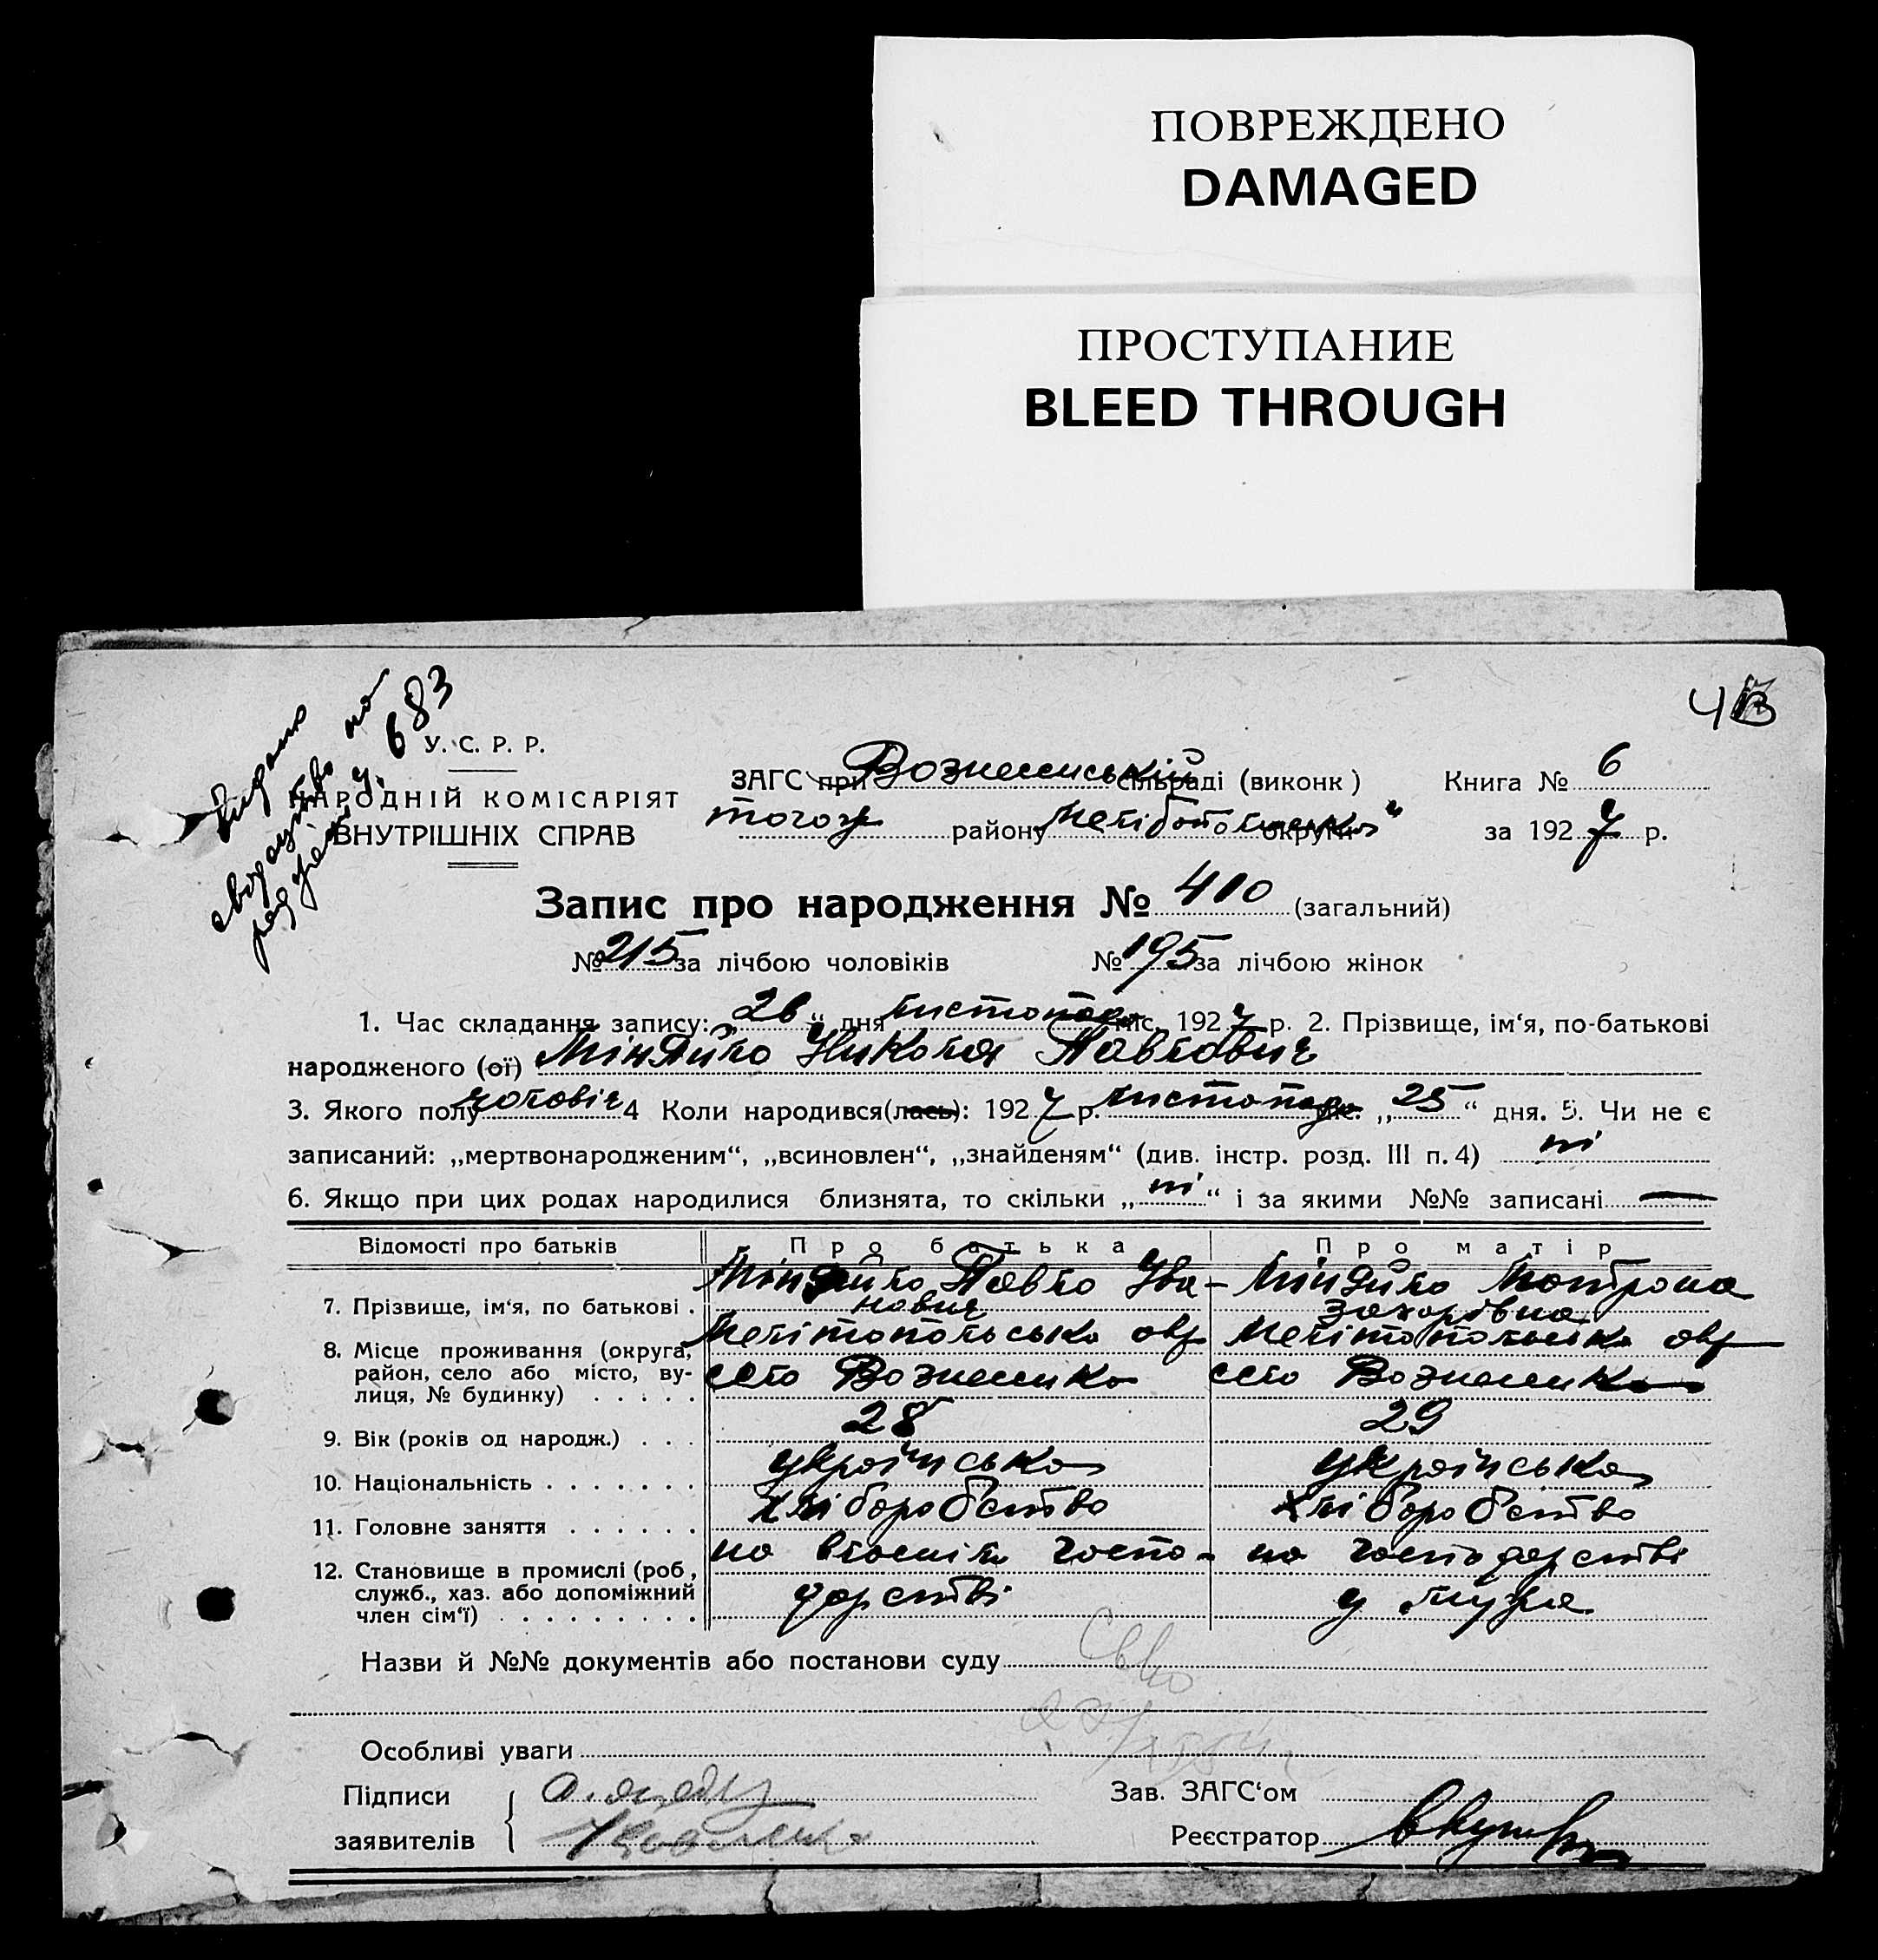 ПОВРЕЖДЕНО
DAMAGED
ПРОСТУПАНИЕ
BLEED THROUGH
683
У. С. Р. Р.
НАРОДНІЙ КОМІСАРІЯТ
ВНУТРІШНІХ СПРАВ
ЗАГС при Вознесенській сільраді (виконк)
Книга № 6
району Мелітопольська округи
за 1927 р.
Запис про народження № 410 (загальний)
№ 215 за лічбою чоловіків № 195 за лічбою жінок
1. Час складання запису: „26“ дня листопада міс. 1927 р. 2. Прізвище, ім‘я, по-батькові
народженого (ої) Міняйло Никола Павлович
3. Якого полу чоловіч 4 Коли народився(лась): 1927 р. листопада міс. „25“ дня. 5. Чи не є
записаний: „мертвонародженим“, „всиновлен“, „знайденям“ (див. інстр. розд. III п. 4) ні
6. Якщо при цих родах народилися близнята, то скільки „ні“ і за якими №№ записані —
Відомості про батьків Про батька Про матір
7. Прізвище, ім‘я, по батькові . Міняйло Павло Іва-нович Міняйло Мотрона Захорівна
8. Місце проживання (округа, Мелітопольська окр Мелітопольська окр
район, село або місто, ву- село Вознесенка село Вознесенка
лиця, № будинку) . . . . .
9. Вік (років од народж.) . . . 28 29
10. Національність . . . . . . . українська українська
11. Головне заняття . . . . . . хліборобство хліборобство
12. Становище в промислі (роб, на власнім госпо- на господарстві
служб., хаз. або допоміжний дарстві у мужа
член сім‘ї) . . . . . . . . .
Назви й №№ документів або постанови суду
Особливі уваги
Підписи
заявителів
Зав. ЗАГС‘ом
Реєстратор